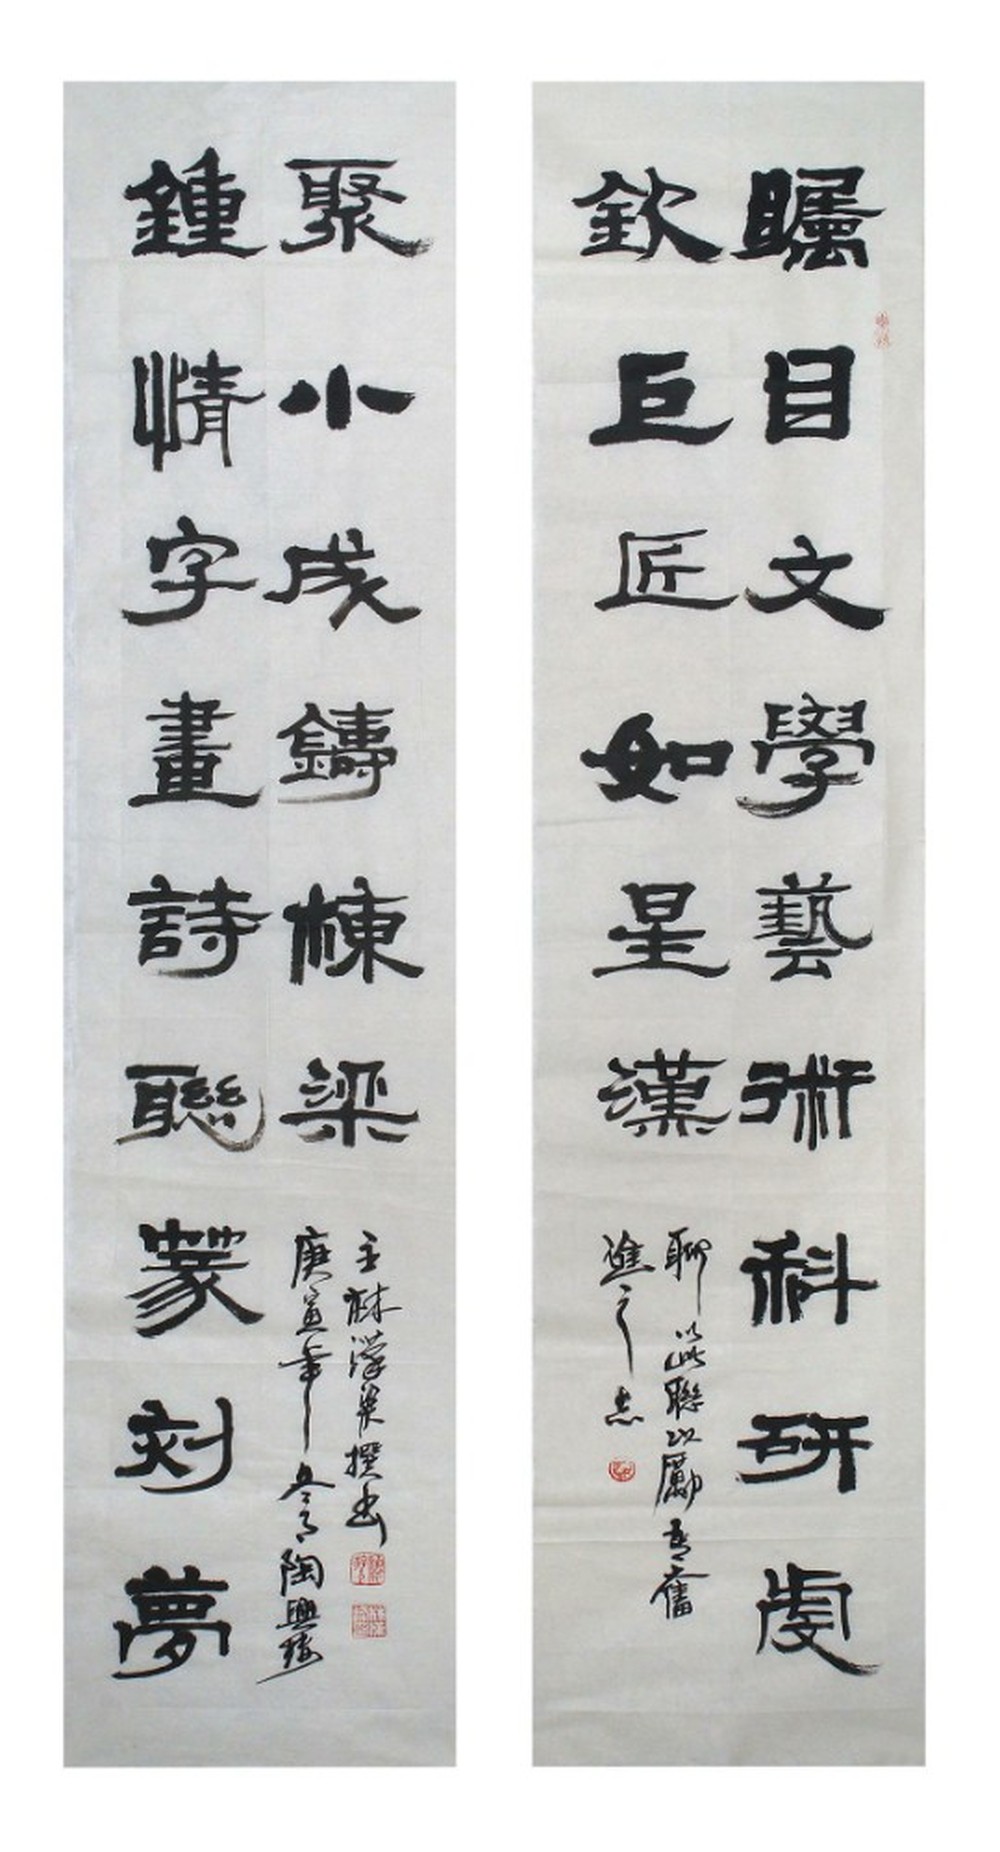 矚目文學藝術科研處
欽巨匠如星漢
聊以此聯以勵吾奮
進之志
鍾情字畫詩聯篆刻夢
聚小成鑄棟梁
庚寅年冬月陶興
撰書